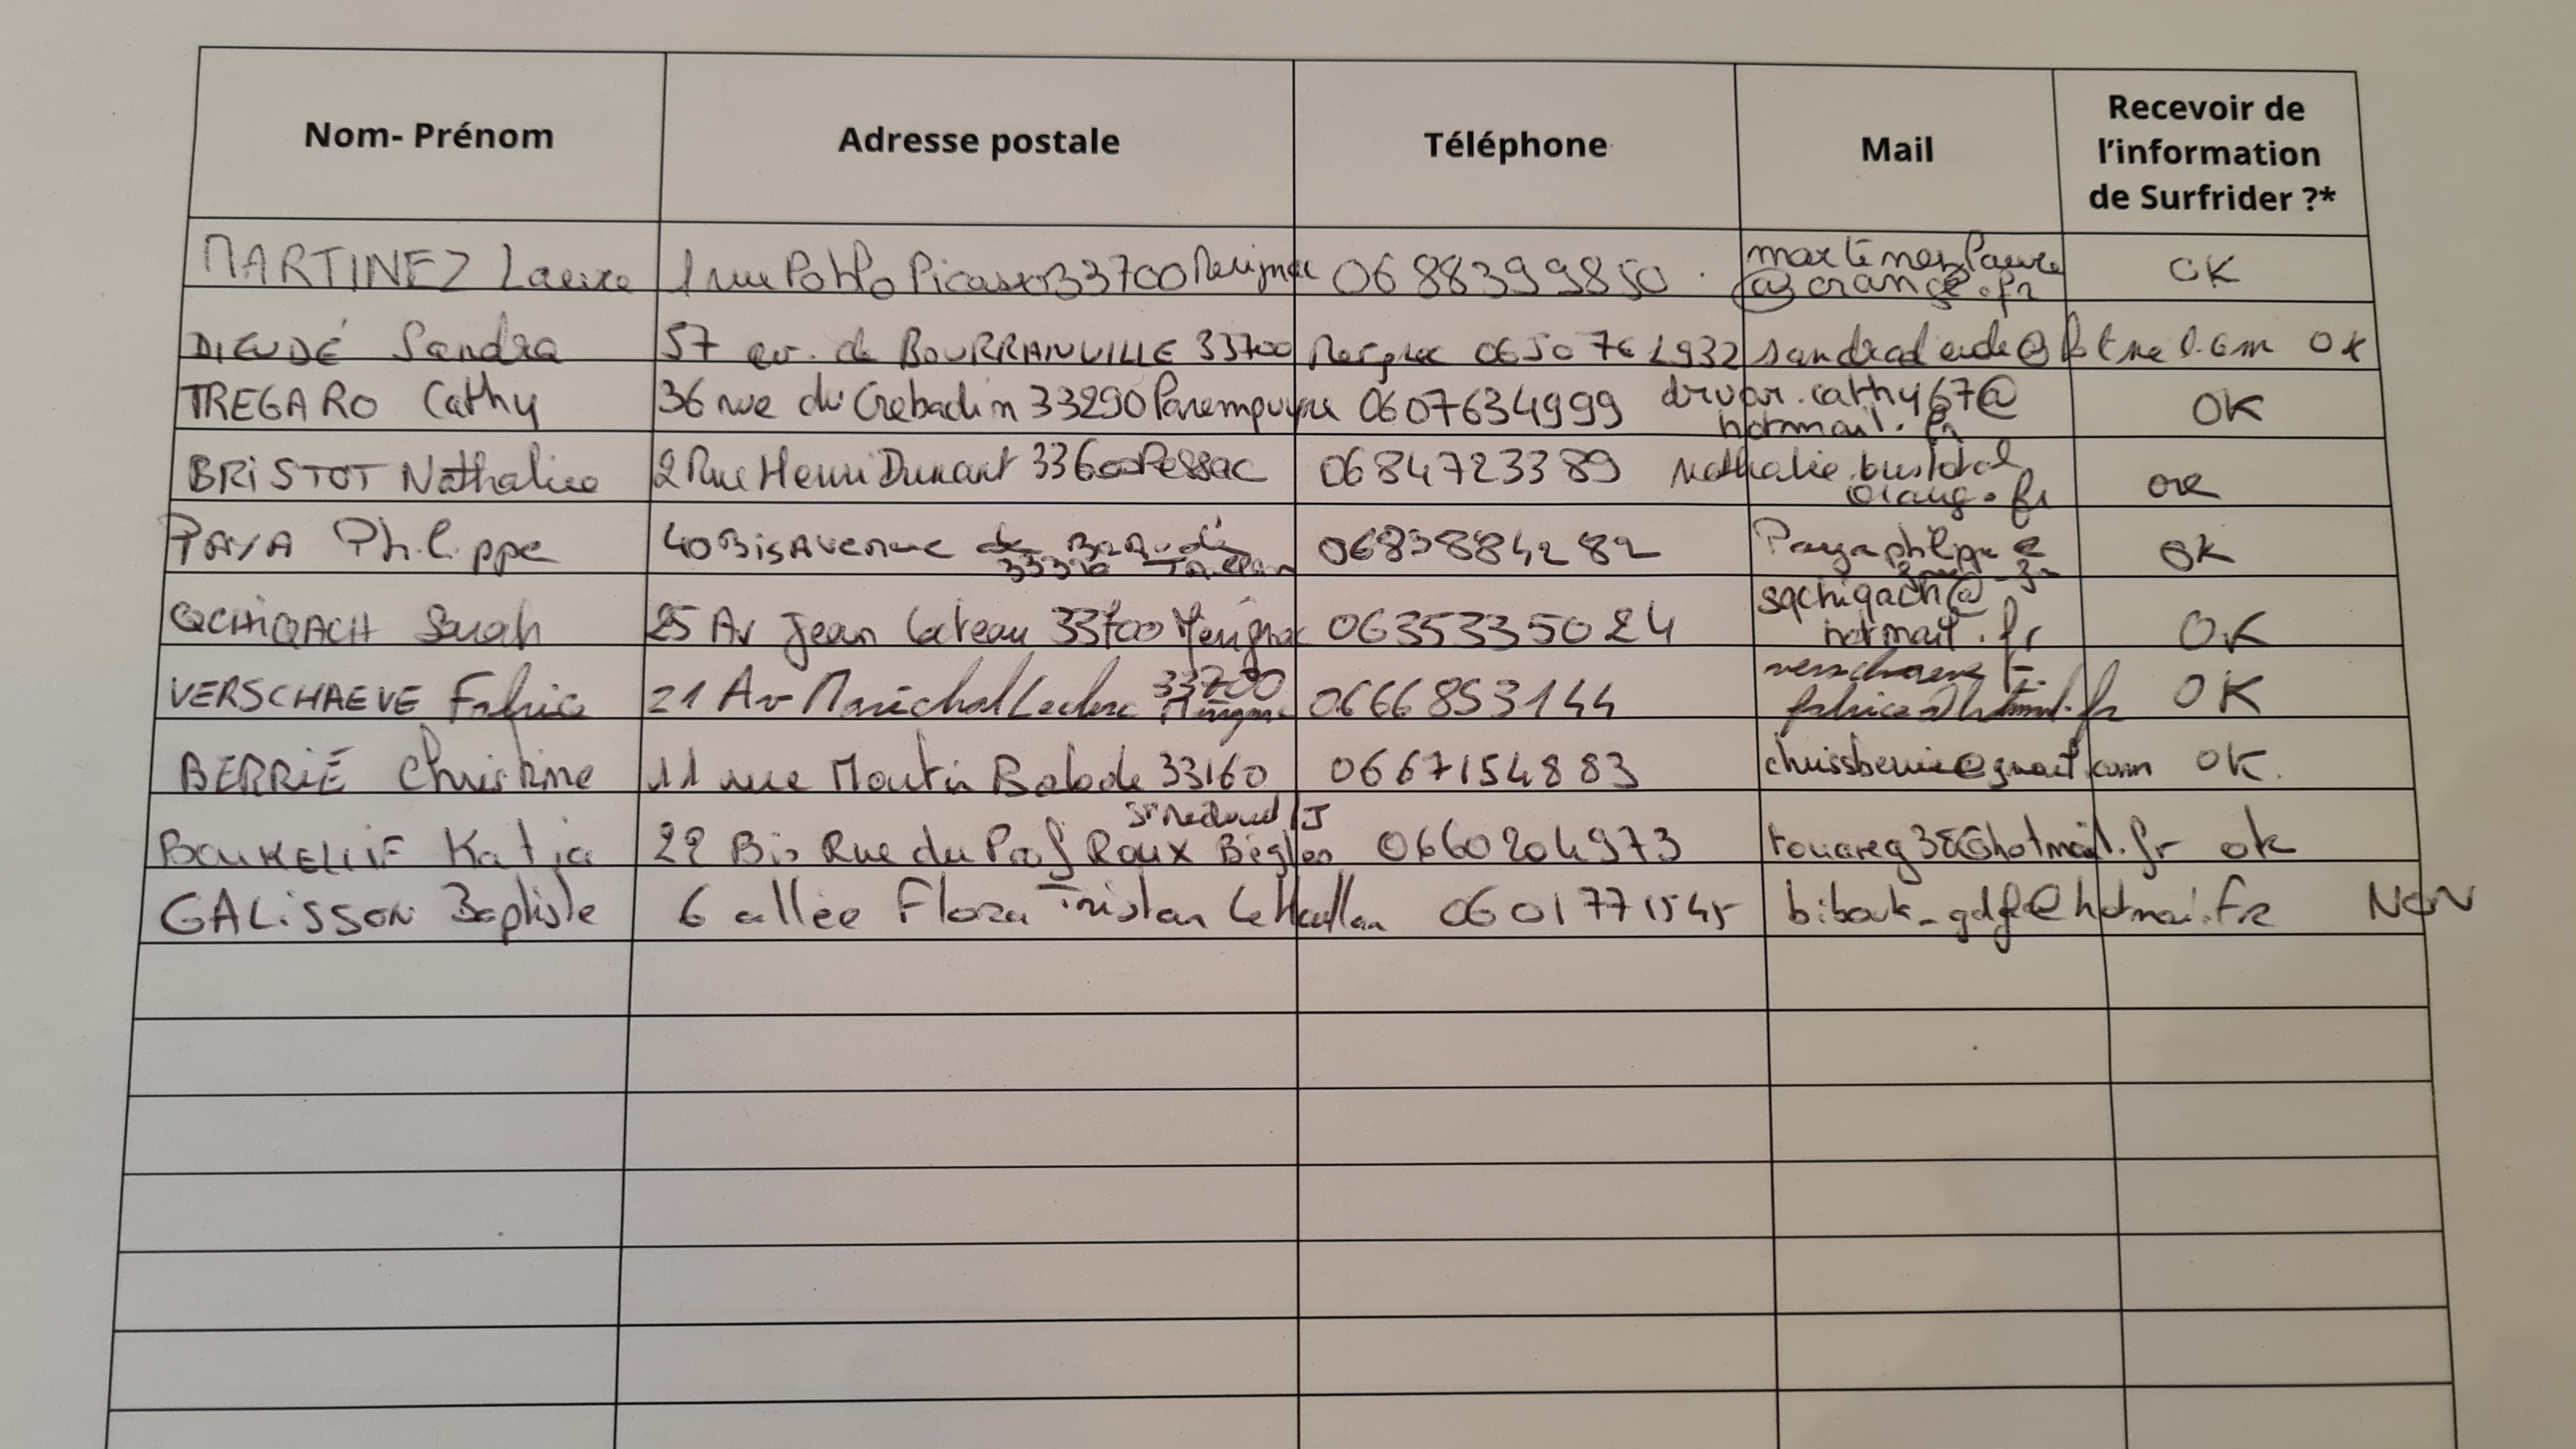 Nom- Prénom Adresse postale Téléphone Mail Recevoir de
l'information
de Surfrider ?*
MARTINEZ Laure 1 rue Pablo Picasso 33700 Merignac 0688399850 martinezlaure
@orange.fr OK
DIEUDÉ Sandra 57 av. de BOURRANVILLE 33700 Merignac 06 50 76 2932 OK
TREGARO Cathy 36 rue du 33290 Parempuyre 0607634999 druar.cathy67@
hotmail.fr OK
BRISTOT Nathalie 2 Rue Henri Dunant 33600 Pessac 0684723389 OK
PAYA Philippe 40 Bis Avenue de 0683884282 OK
QCHIQACH Sarah 25 Av Jean Cocteau 33700 Merignac 0635335024 sqchiqach@
hotmail.fr OK
VERSCHAEVE Fabrice 21 Av Maréchal Leclerc 33700
Mérignac 0666853144 OK
BERRIÉ Christine 11 rue Moutin Balade 33160 0667154883 chrissberrie@gmail.com OK.
St Medard /J
Katia 22 Bis Rue du Prof Roux Bègles 0660204973 ok
GALISSON Baptiste 6 allée Flora Tristan Le Haillan 0601771545 NON